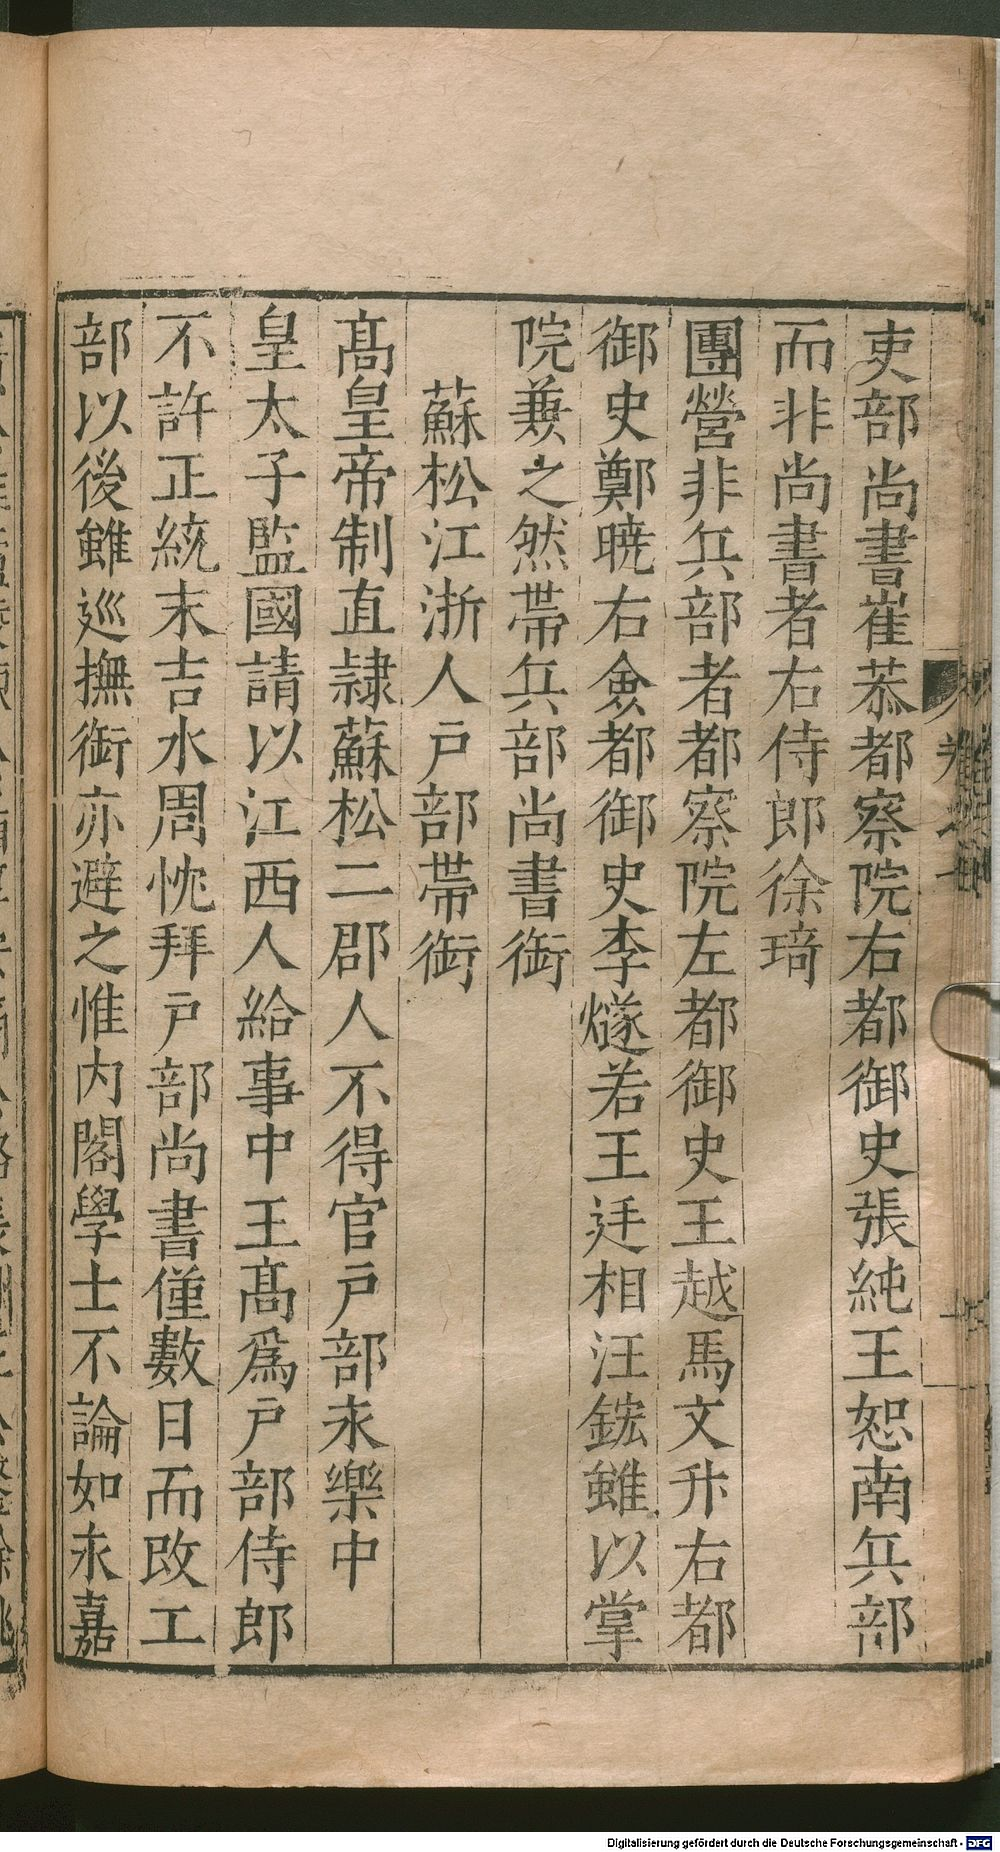 吏部尚書崔恭都察院右都御史張純王恕南兵部
而非尚書者右侍郎徐琦
團營非兵部者都察院左都御史王越馬文升右都
御史鄭曉右僉都御史李燧若王廷相汪鋐雖以掌
院兼之然帶兵部尚書銜
蘇松江浙人戶部帶銜
高皇帝制直隷蘇松二郡人不得官戶部永樂中
皇太子監國請以江西人給事中王高爲戶部侍郎
不許正統末吉水周忱拜戶部尚書僅數日而改工
部以後雖巡撫銜亦避之惟內閣學士不論如永嘉
Digitalisierung gefördert durch die Deutsche Forschungsgemeinschaft - DFG